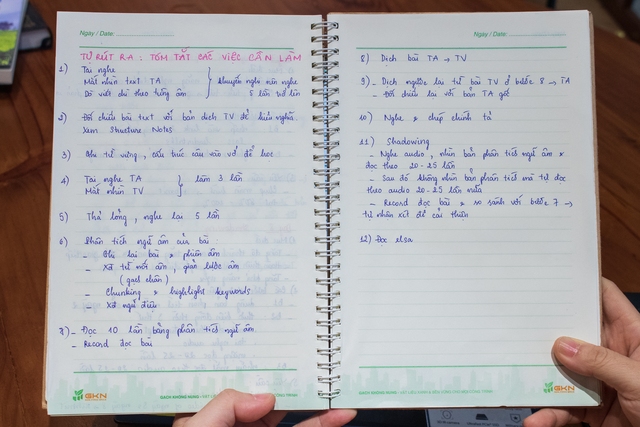 Ngày / Date:
TỰ RÚT RA : TÓM TẮT CÁC VIỆC CẦN LÀM
1) Tai nghe
Mắt nhìn text TA
Dò viết chì theo từng âm
} khuyến nghị nên nghe
5 lần trở lên
2) Đối chiếu bài text với bản dịch TV để hiểu nghĩa
Xem Structure Notes
3) Ghi từ vựng, cấu trúc câu vào vở để học
4) Tai nghe TA
Mắt nhìn TV
} làm 3 lần
5) Thả lỏng, nghe lại 5 lần
6) Phân tích ngữ âm của bài
- Ghi lại bài & phiên âm
- Xđ từ nối âm, giản lược âm
(gạch chân)
- Chunking & highlight keywords
- Xđ ngữ điệu
7) - Đọc 10 lần bảng phân tích ngữ âm
- Record đọc bài
GKN
GẠCH KHÔNG NUNG
Ngày / Date:
8) Dịch bài TA → TV
9) - Dịch ngược lại từ bài TV ở bước 8 → TA
- Đối chiếu lại với bản TA gốc
10) Nghe & chép chính tả
11) Shadowing
- Nghe audio, nhìn bản phân tích ngữ âm &
đọc theo 20-25 lần
- Sau đó không nhìn bản phân tích mà tự đọc
theo audio 20-25 lần nữa
- Record đọc bài & so sánh với bước 7 →
tự nhận xét để cải thiện
12) Đọc elsa
GẠCH KHÔNG NUNG
GKN